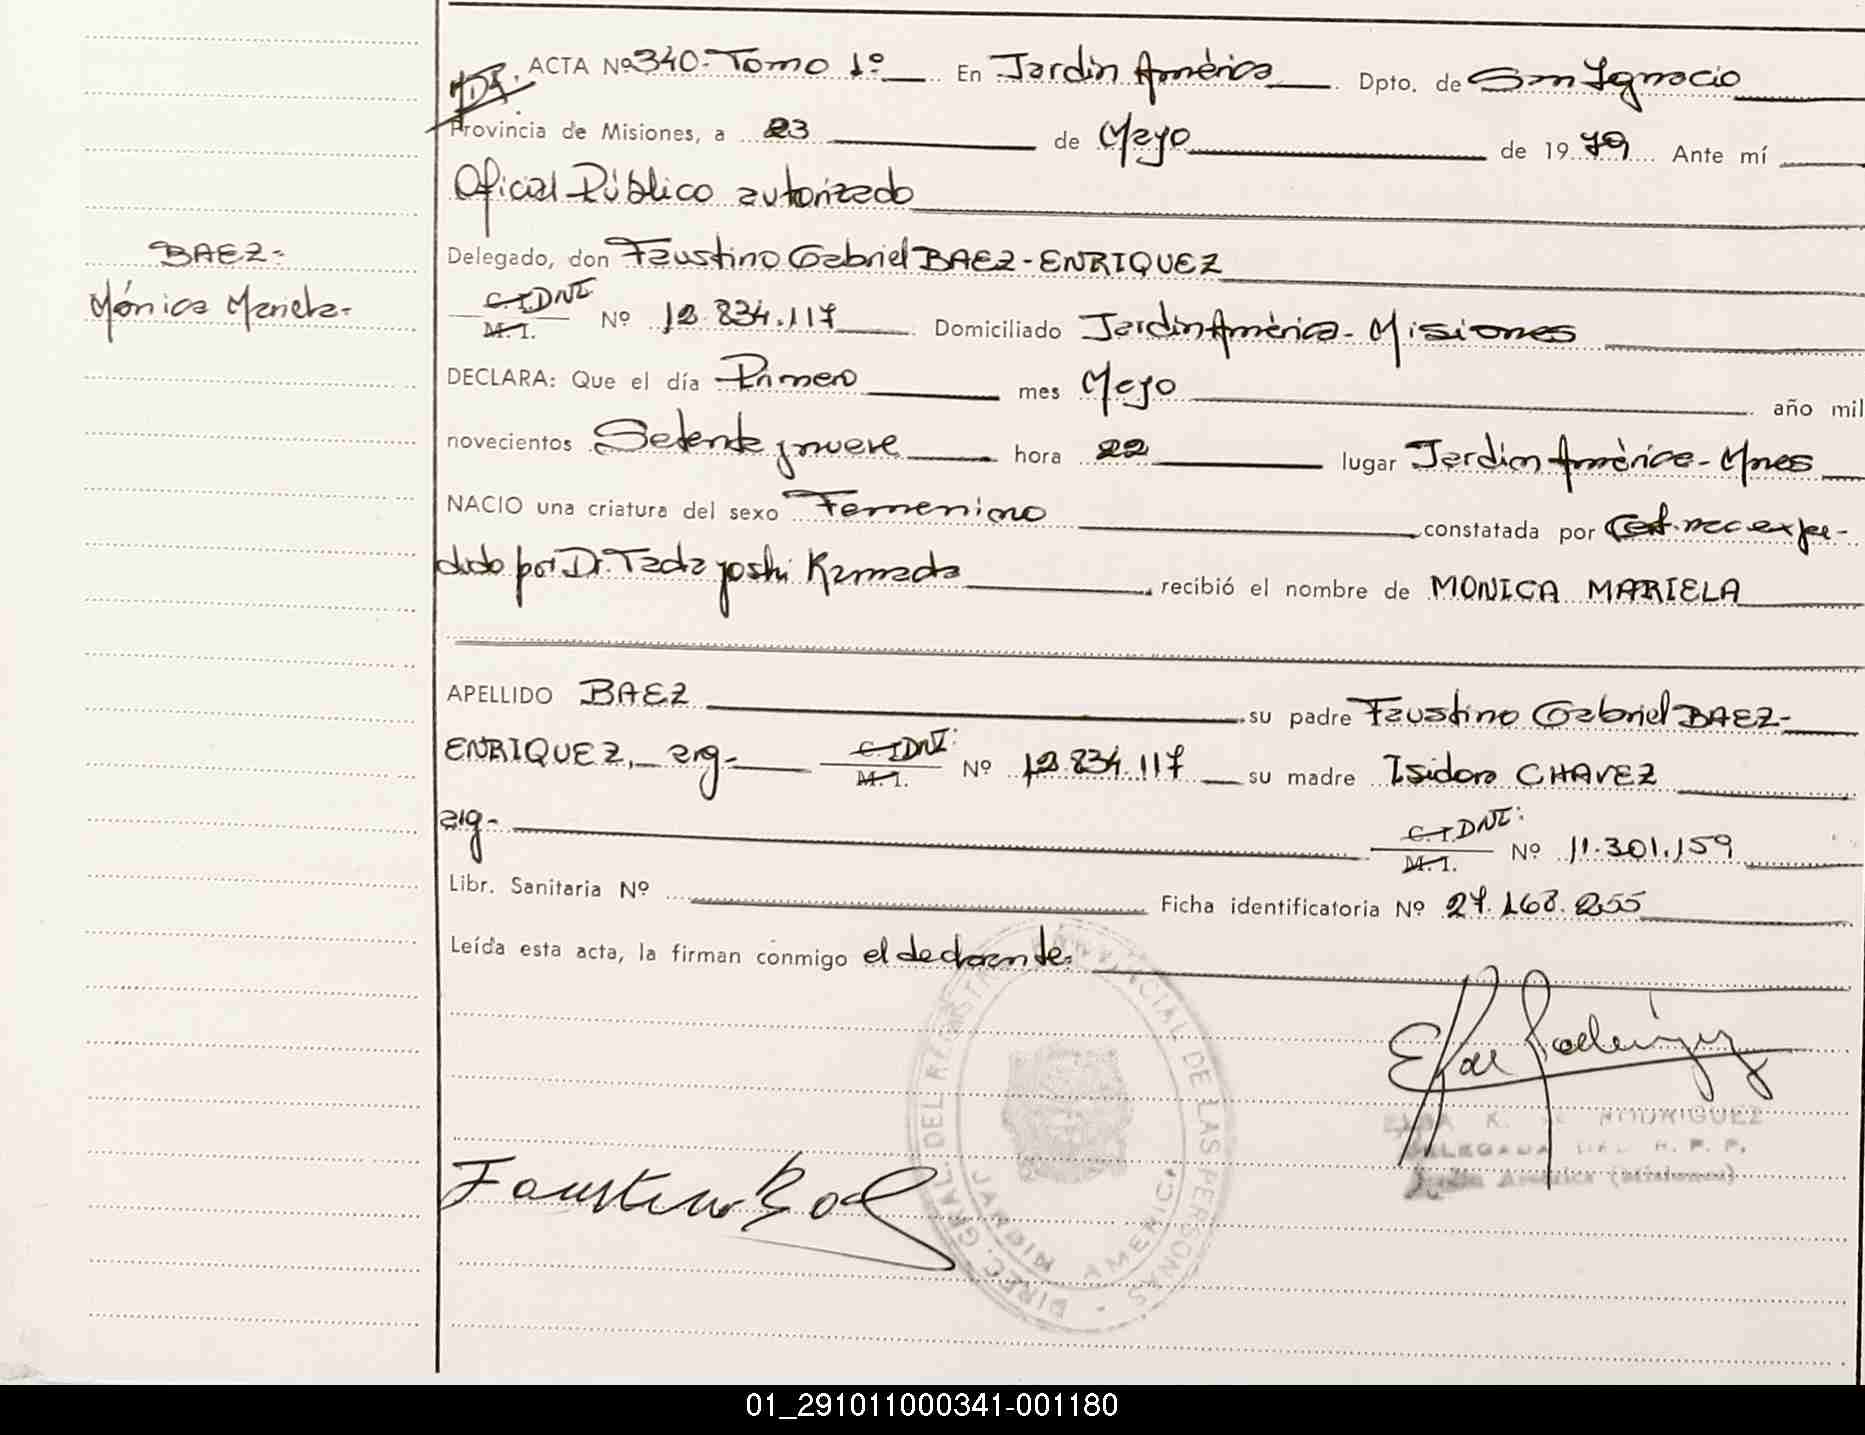 ACTA Nº 340- Tomo 1º En Jardín América Dpto. de San Ignacio
Provincia de Misiones, a 23 de Mayo de 1979 Ante mí
Oficial Público autorizado
BAEZ-
Mónica Mariela-
Delegado, don Faustino Gabriel BAEZ-ENRIQUEZ
C.I. DNI
M.I. Nº 12.834.117 Domiciliado Jardín América- Misiones
DECLARA: Que el día Primero mes Mayo año mil
novecientos Setenta y nueve hora 22 lugar Jardín América- Mnes
NACIO una criatura del sexo Femenino constatada por Cert. mec expe-
dido por Dr. Tadayoshi Kamada recibió el nombre de MONICA MARIELA
APELLIDO BAEZ su padre Faustino Gabriel BAEZ-
ENRIQUEZ, arg- C.I. DNI: M.I. Nº 12.834.117 su madre Isidora CHAVEZ
arg- C.I. DNI: M.I. Nº 11.301.159
Libr. Sanitaria Nº Ficha identificatoria Nº 27.168.255
Leída esta acta, la firman conmigo el declarante.
DIREC. GRAL. DEL REGISTRO PROVINCIAL DE LAS PERSONAS
AMERICA
RODRIGUEZ
DELEGADA DEL R. P. P.
Jardín América (Misiones)
Faustino Baez
01_291011000341-001180